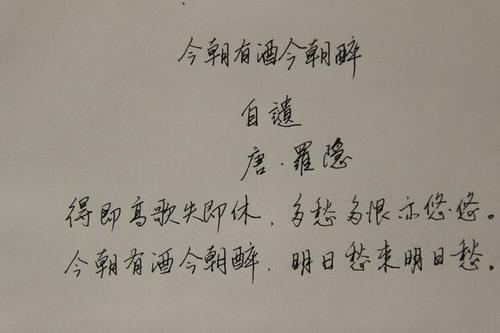 今朝有酒今朝醉
自遗
唐·罗隐
得即高歌失即休，多愁多恨亦悠悠。
今朝有酒今朝醉，明日愁来明日愁。